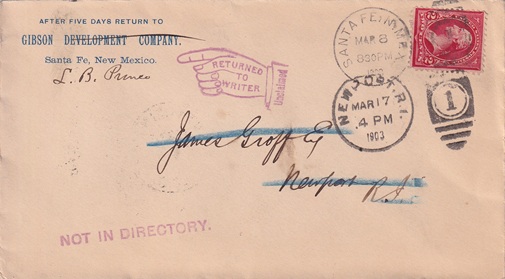 AFTER FIVE DAYS RETURN TO
GIBSON DEVELOPMENT COMPANY.
Santa Fe, New Mexico.
L. B. Prince
RETURNED
TO
WRITER
Unclaimed
SANTA FE, N. MEX.
MAR 8
830PM
1903
NEWPORT, R.I.
MAR 17
4 PM
1903
1
James Groff Esq
Newport R.I.
NOT IN DIRECTORY.